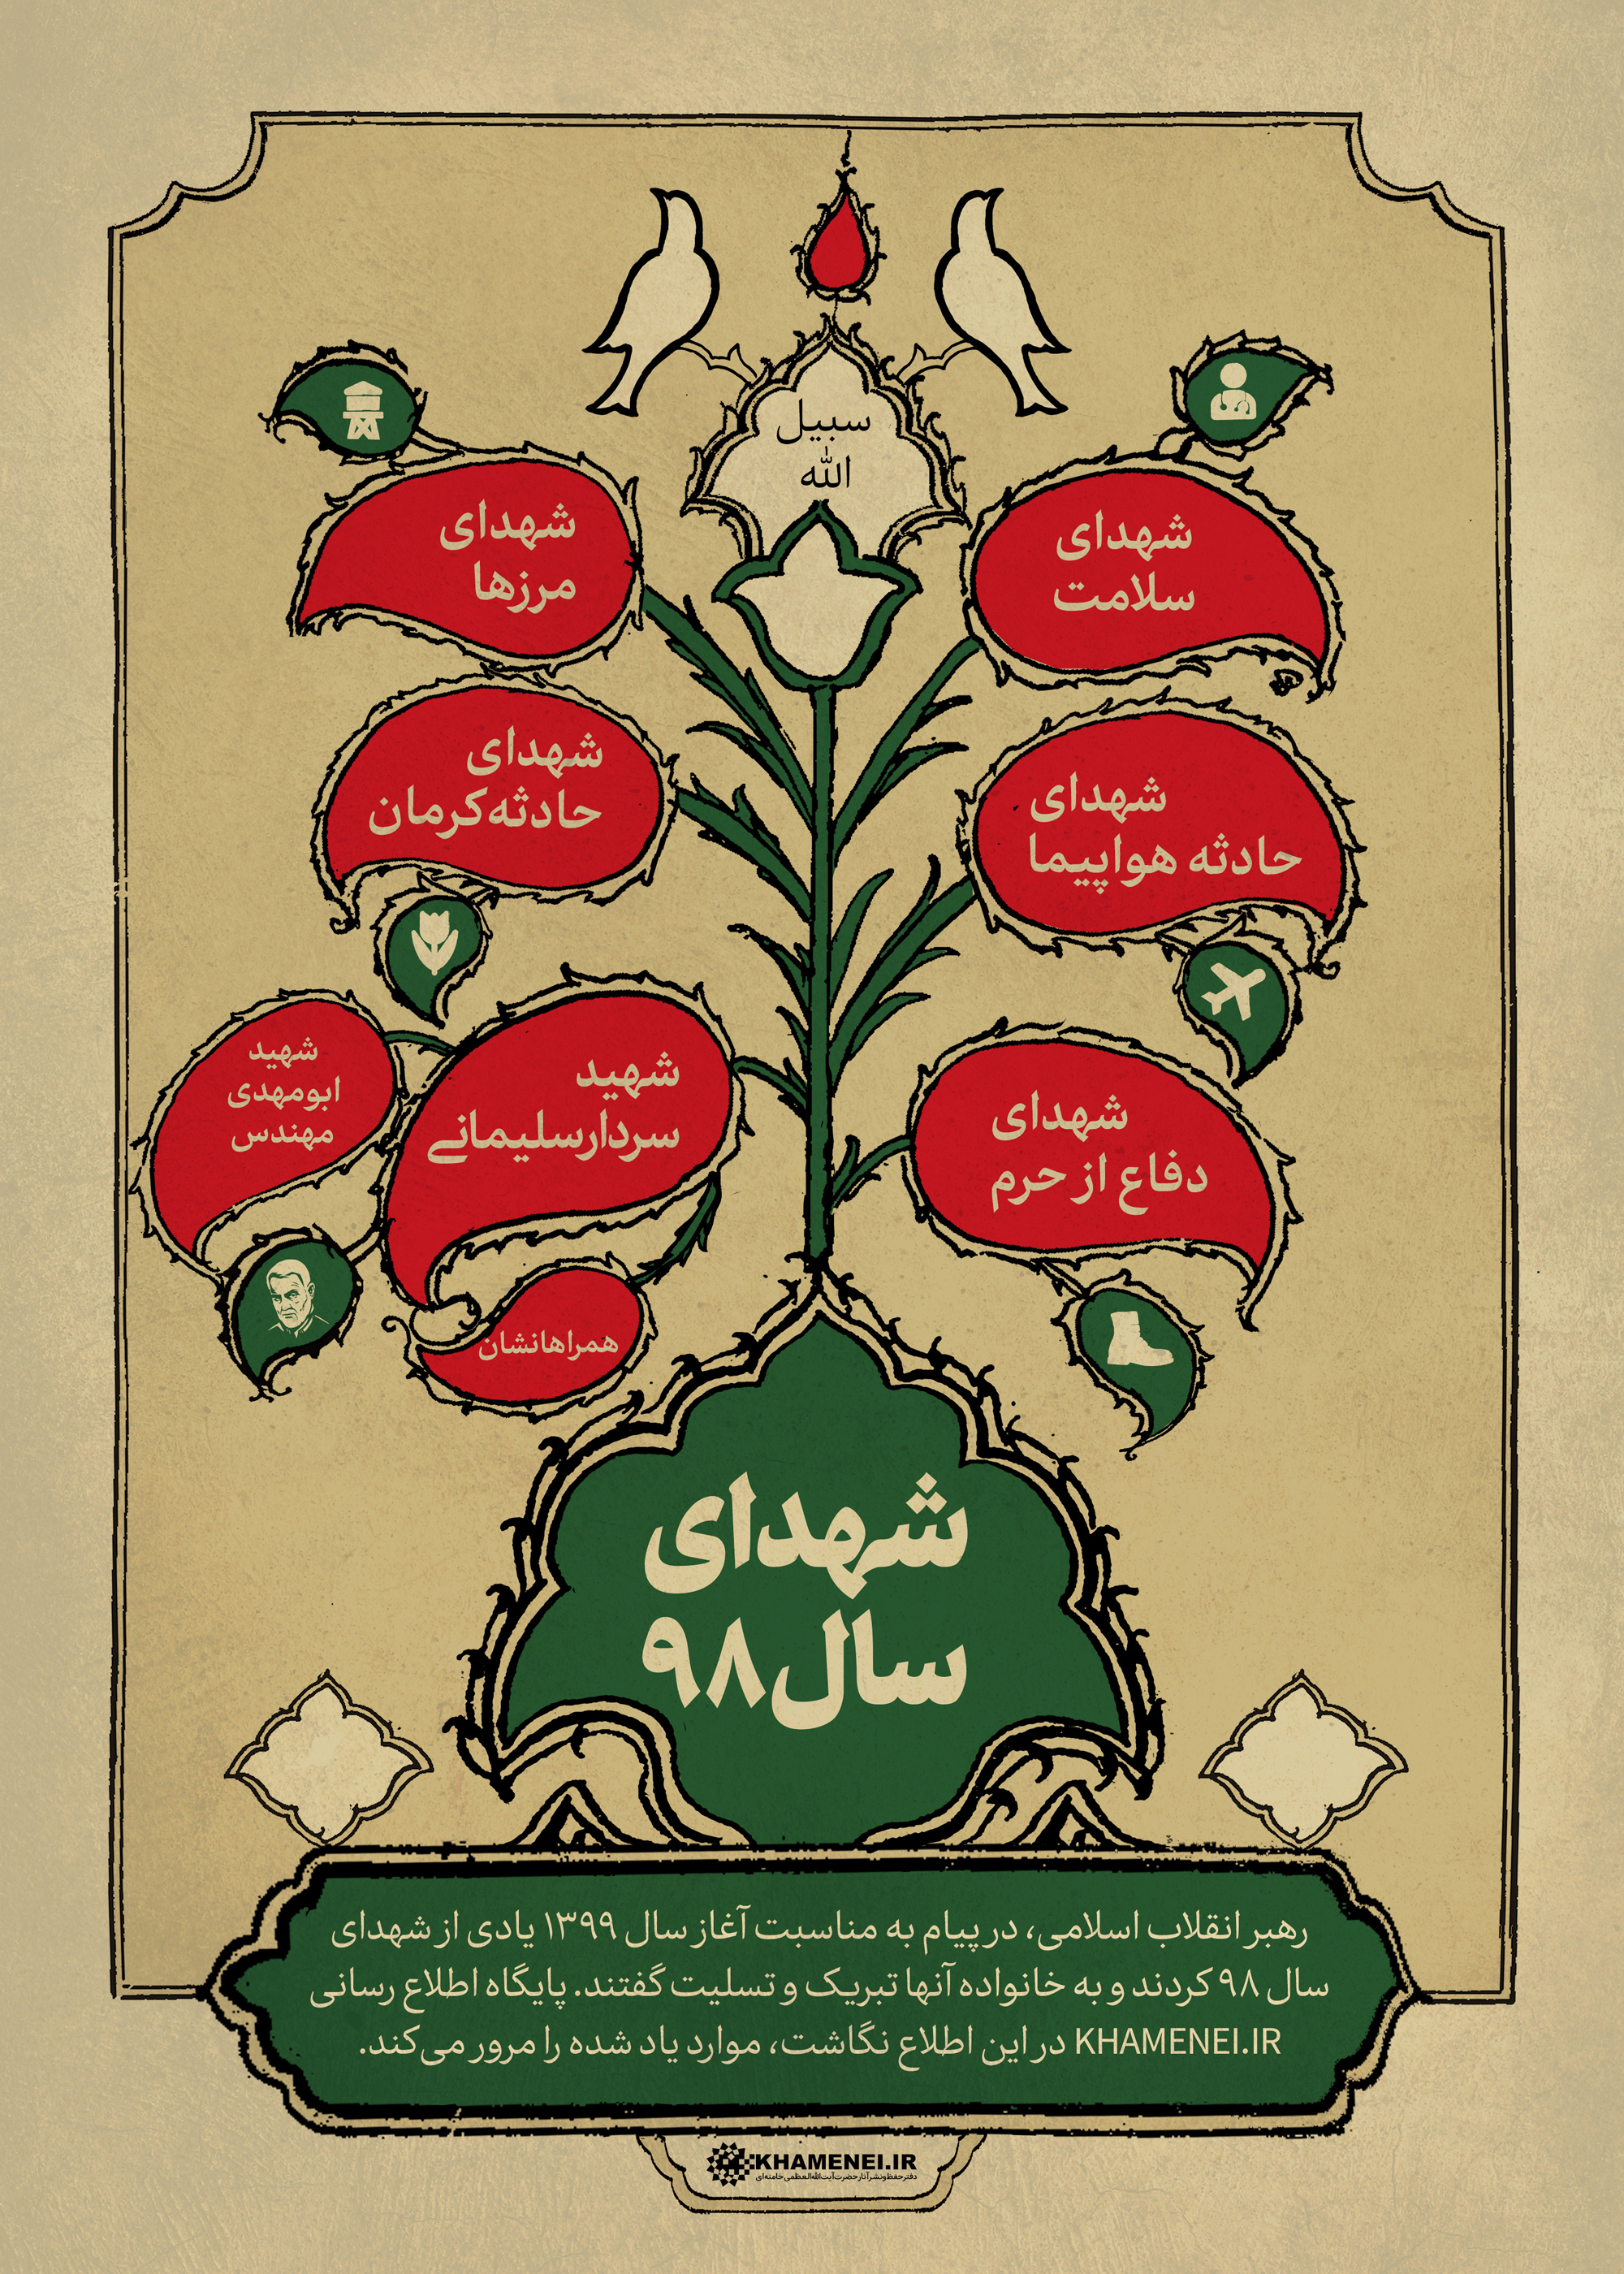 سبیل
الله
شهدای
سلامت
شهدای
مرزها
شهدای
حادثه هواپیما
شهدای
حادثه کرمان
شهدای
دفاع از حرم
شهید
سردار سلیمانے
شهید
ابومهدی
مهندس
همراهانشان
شهدای
سال ۹۸
رهبر انقلاب اسلامی، در پیام به مناسبت آغاز سال ۱۳۹۹ یادی از شهدای
سال ۹۸ کردند و به خانواده آنها تبریک و تسلیت گفتند. پایگاه اطلاع رسانی
KHAMENEI.IR در این اطلاع نگاشت، موارد یاد شده را مرور می‌کند.
KHAMENEI.IR
دفتر حفظ و نشر آثار حضرت آیت‌الله العظمی خامنه‌ای